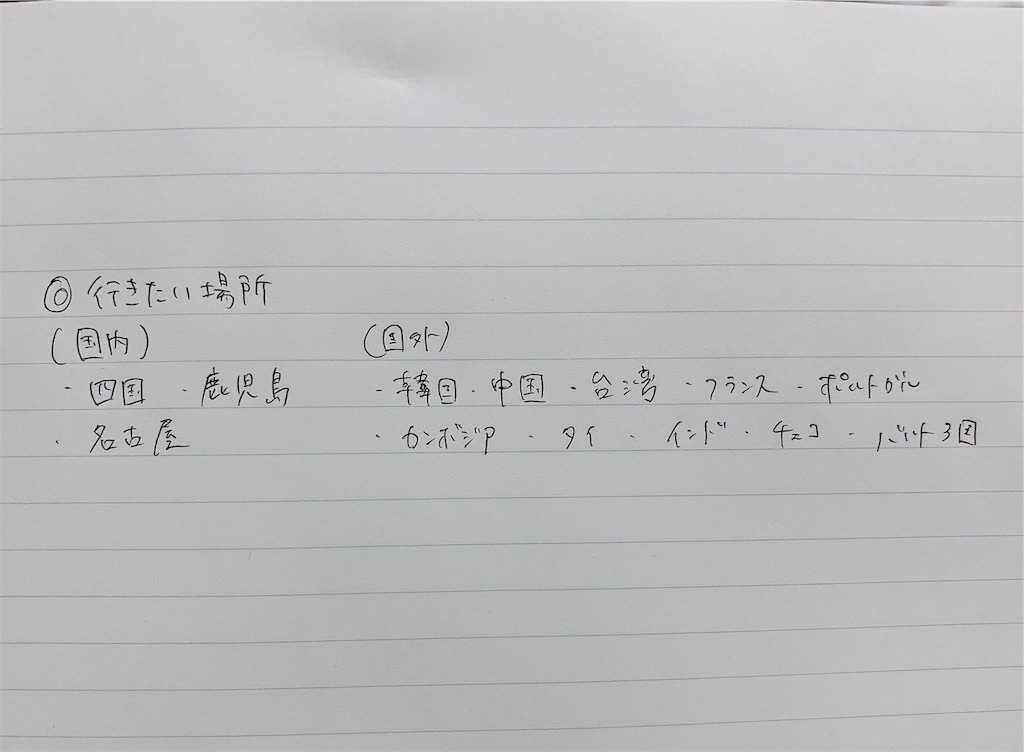 ◎ 行きたい場所
(国内) (国外)
・四国 ・鹿児島 ・韓国・中国 ・台湾 ・フランス ・ポルトガル
・名古屋 ・カンボジア ・タイ ・インド ・チェコ ・バルト3国